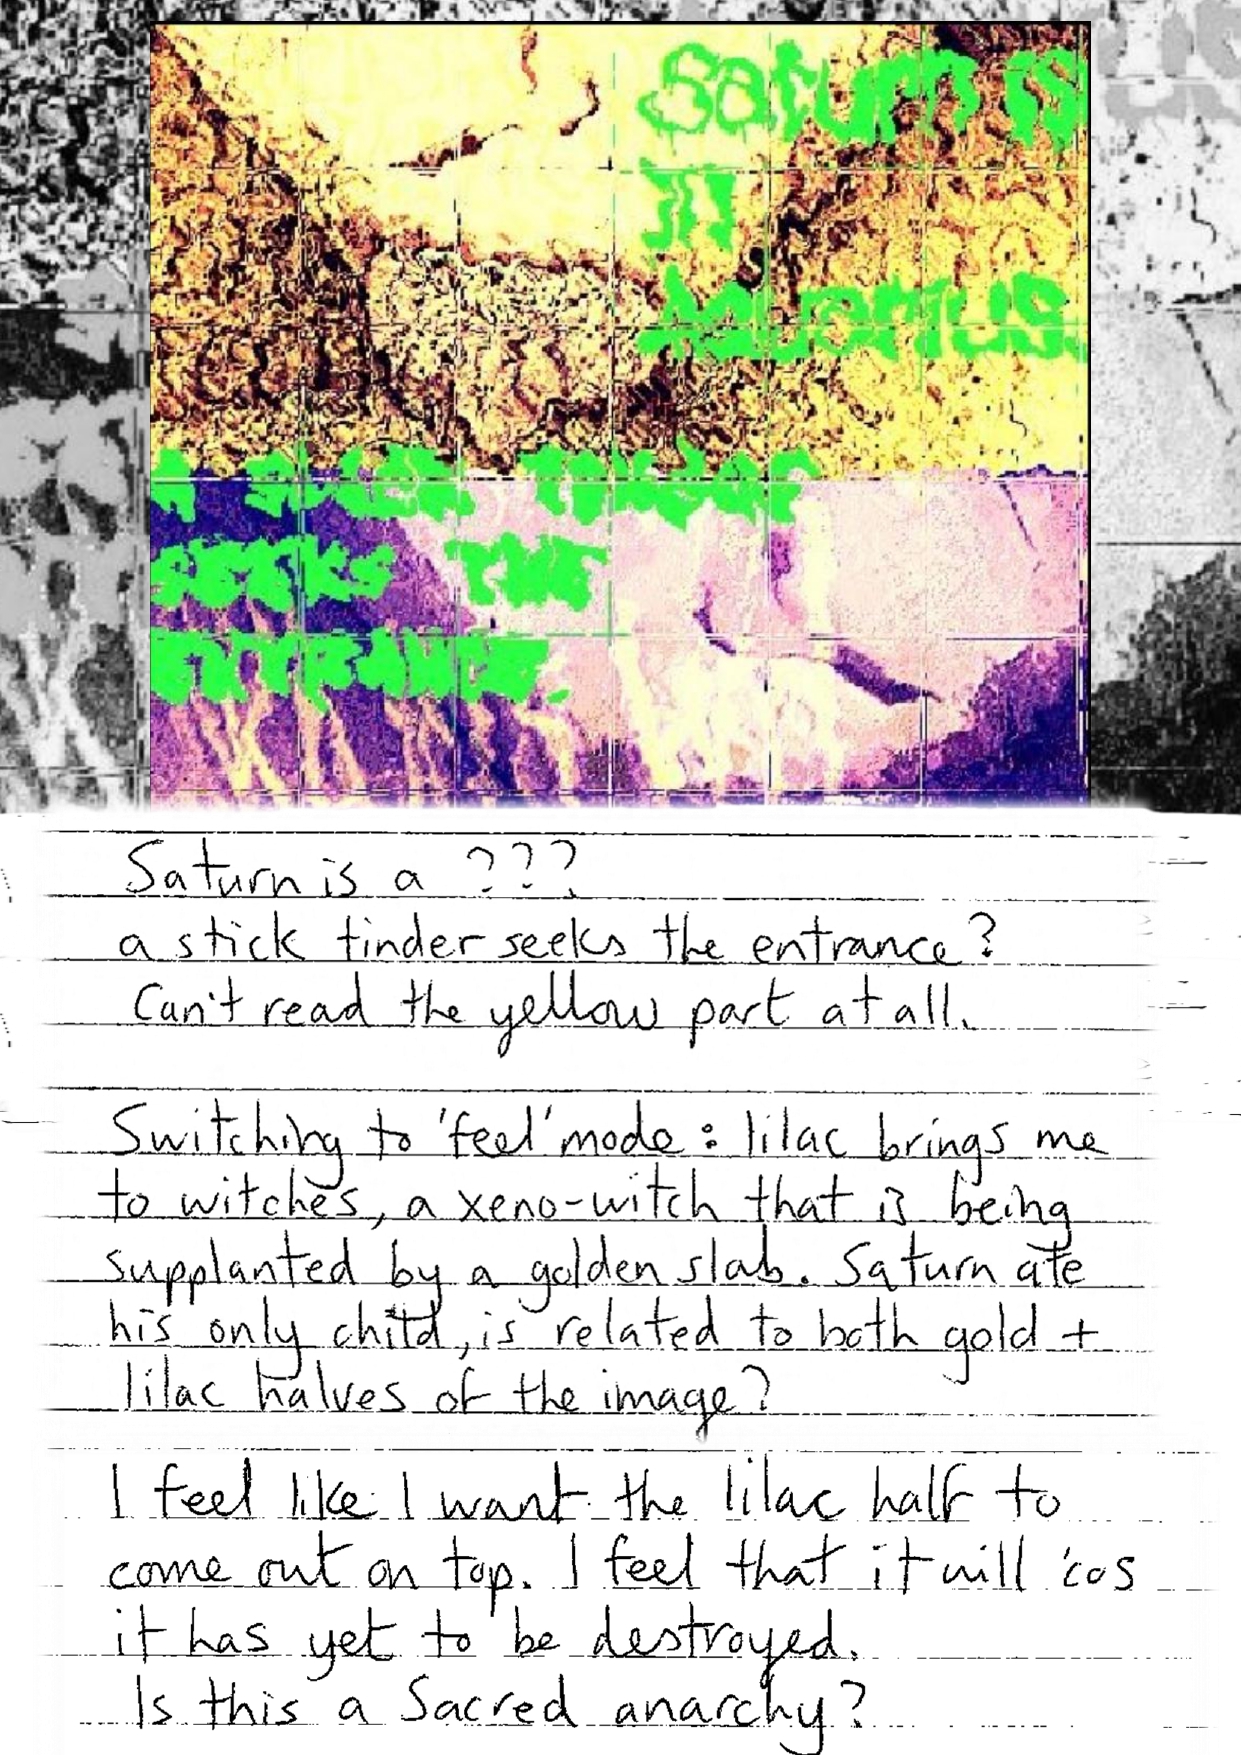 Saturn is
in
Aquarius.
seeks the
entrance.
Saturn is a ???
a stick tinder seeks the entrance?
Can't read the yellow part at all.
Switching to 'feel' mode: lilac brings me
to witches, a xeno-witch that is being
supplanted by a golden slab. Saturn ate
his only child, is related to both gold +
lilac halves of the image?
I feel like I want the lilac half to
come out on top. I feel that it will 'cos
it has yet to be destroyed.
Is this a Sacred anarchy?